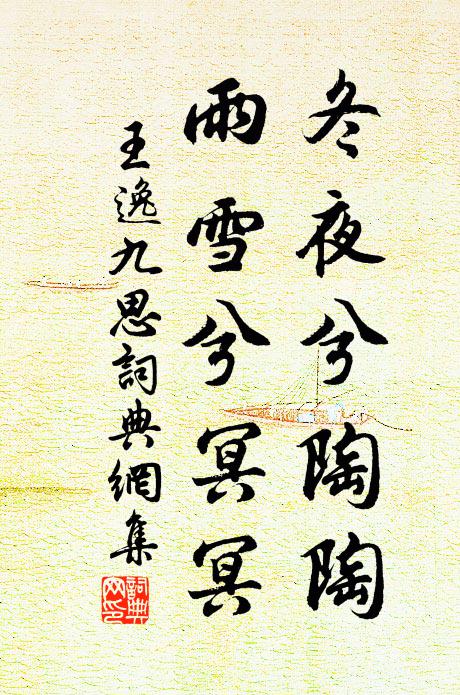 冬夜兮陶陶
雨雪兮冥冥
王逸九思詞典網集
詞典網印